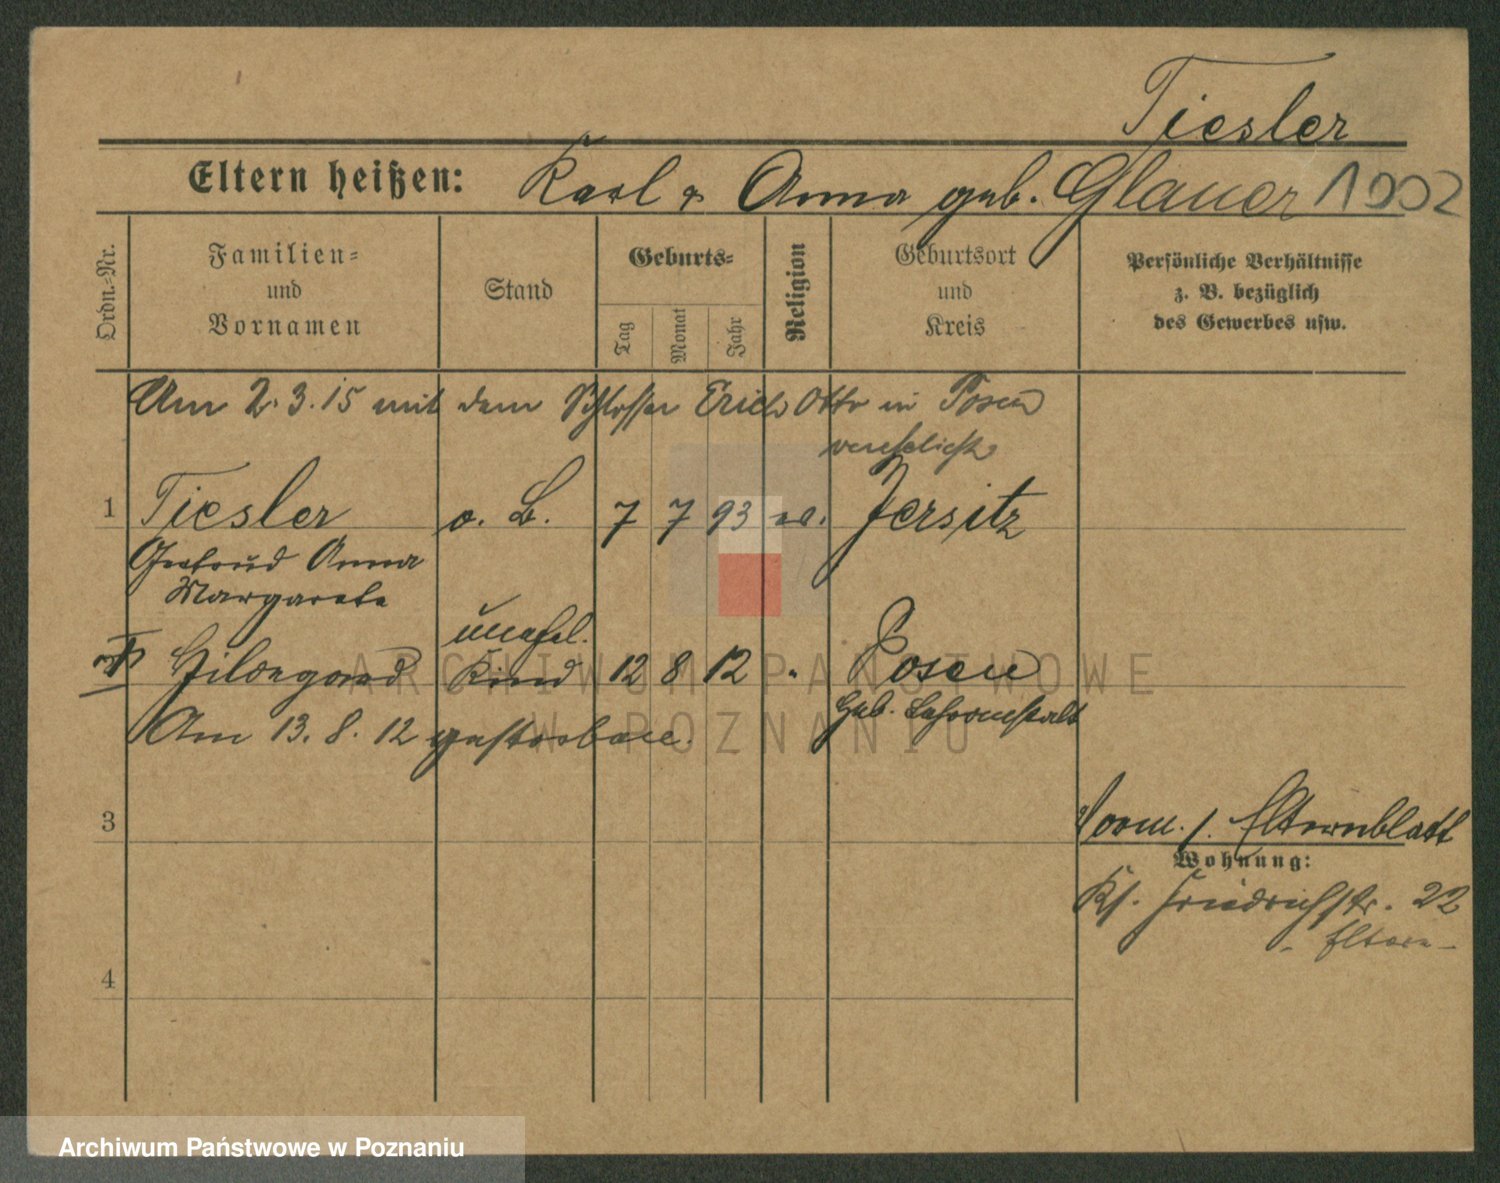 Tiesler
Eltern heißen: Karl & Anna geb. Glauer 1902
Ordn.-Nr.
Familien-
und
Vornamen
Stand
Geburts-
Tag
Monat
Jahr
Religion
Geburtsort
und
Kreis
Persönliche Verhältnisse
z. B. bezüglich
des Gewerbes usw.
Am 2.3.15 mit dem Schlosser Erich Otto in Posen
verehelicht
1 Tiesler o. B. 7 7 93 ev. Jersitz
Gertrud Anna
Margarete
unehel.
Hildegard Kind 12 8 12 " Posen
Heb. Lehranstalt
Am 13.8.12 gestorben.
3
Norm. s. Elternblatt
Wohnung:
Ks. Friedrichstr. 22
- Eltern -
4
ARCHIWUM PAŃSTWOWE
W POZNANIU
Archiwum Państwowe w Poznaniu